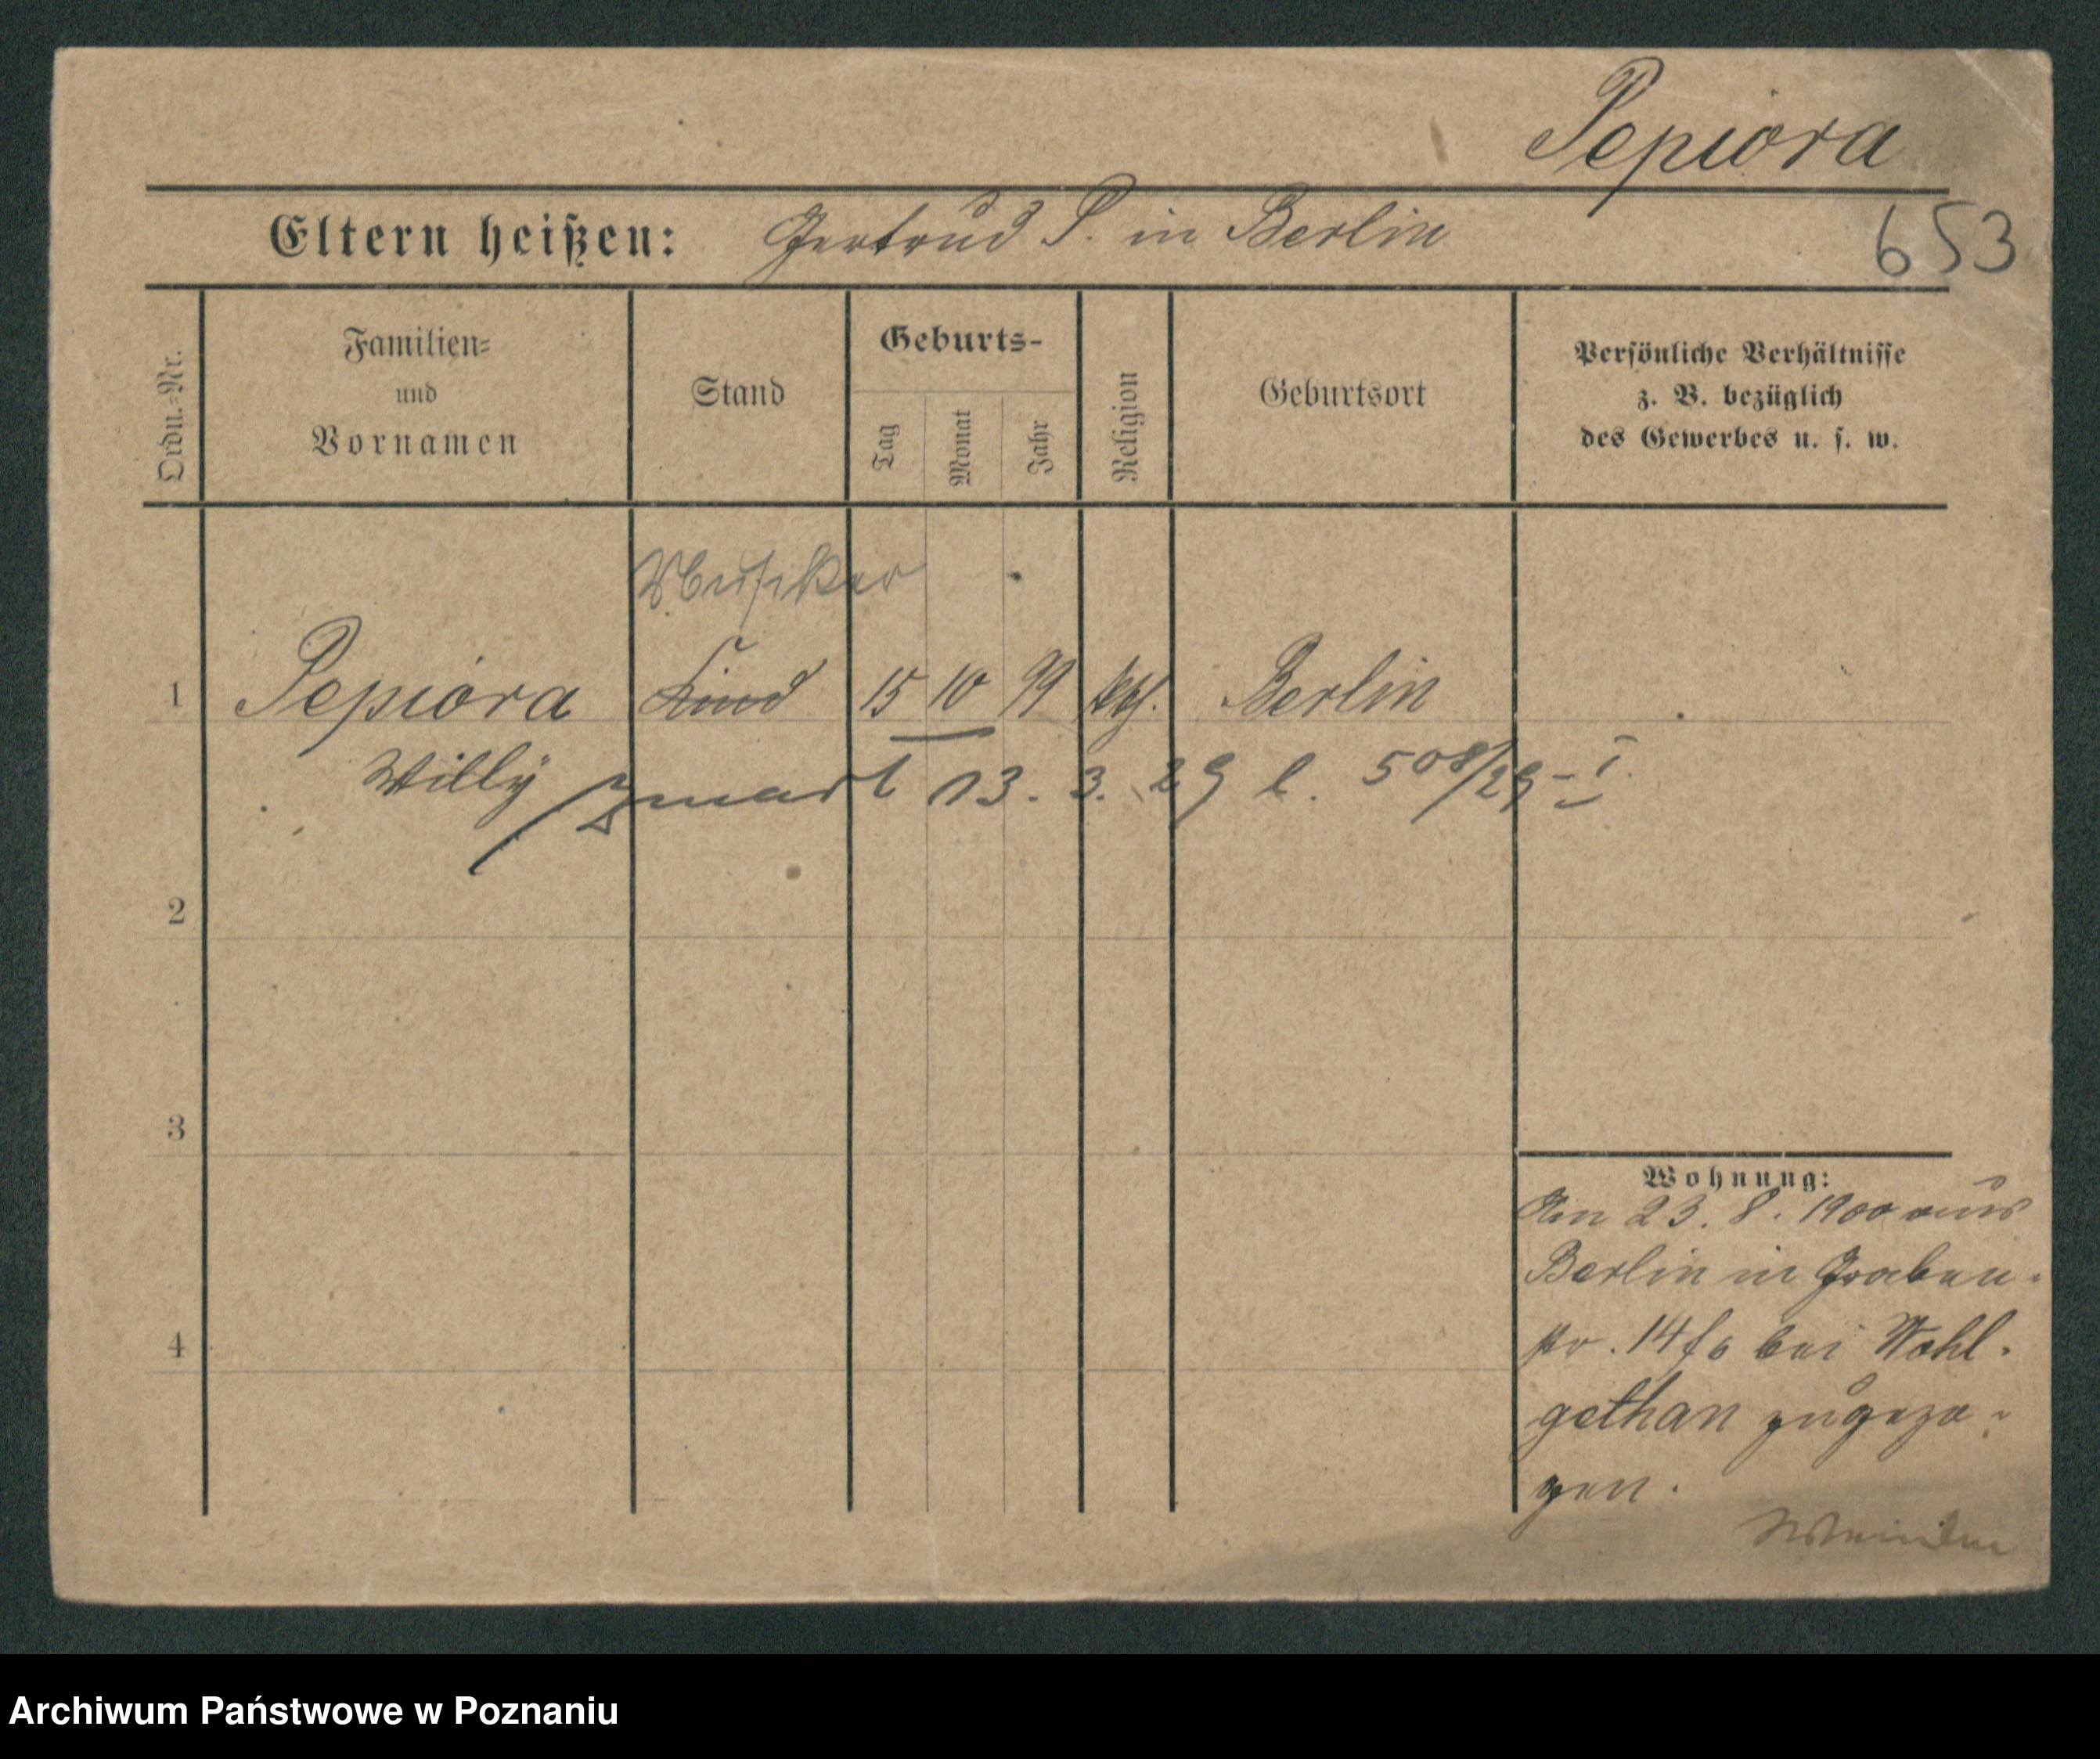 Pepiora
Eltern heißen: Gertrud P. in Berlin
653
Ordn.=Nr.
Familien=
und
Vornamen
Stand
Geburts-
Tag
Monat
Jahr
Religion
Geburtsort
Persönliche Verhältnisse
z. B. bezüglich
des Gewerbes u. s. w.
Musiker
1 Pepiora Kind 15 10 99 kth. Berlin
Willy zmarł 13. 3. 29 l. 508/29 - I.
2
3
4
Wohnung:
Am 23. 8. 1900 aus
Berlin in Graben-
str. 14 bei Wohl-
gethan zugezo-
gen.
Archiwum Państwowe w Poznaniu